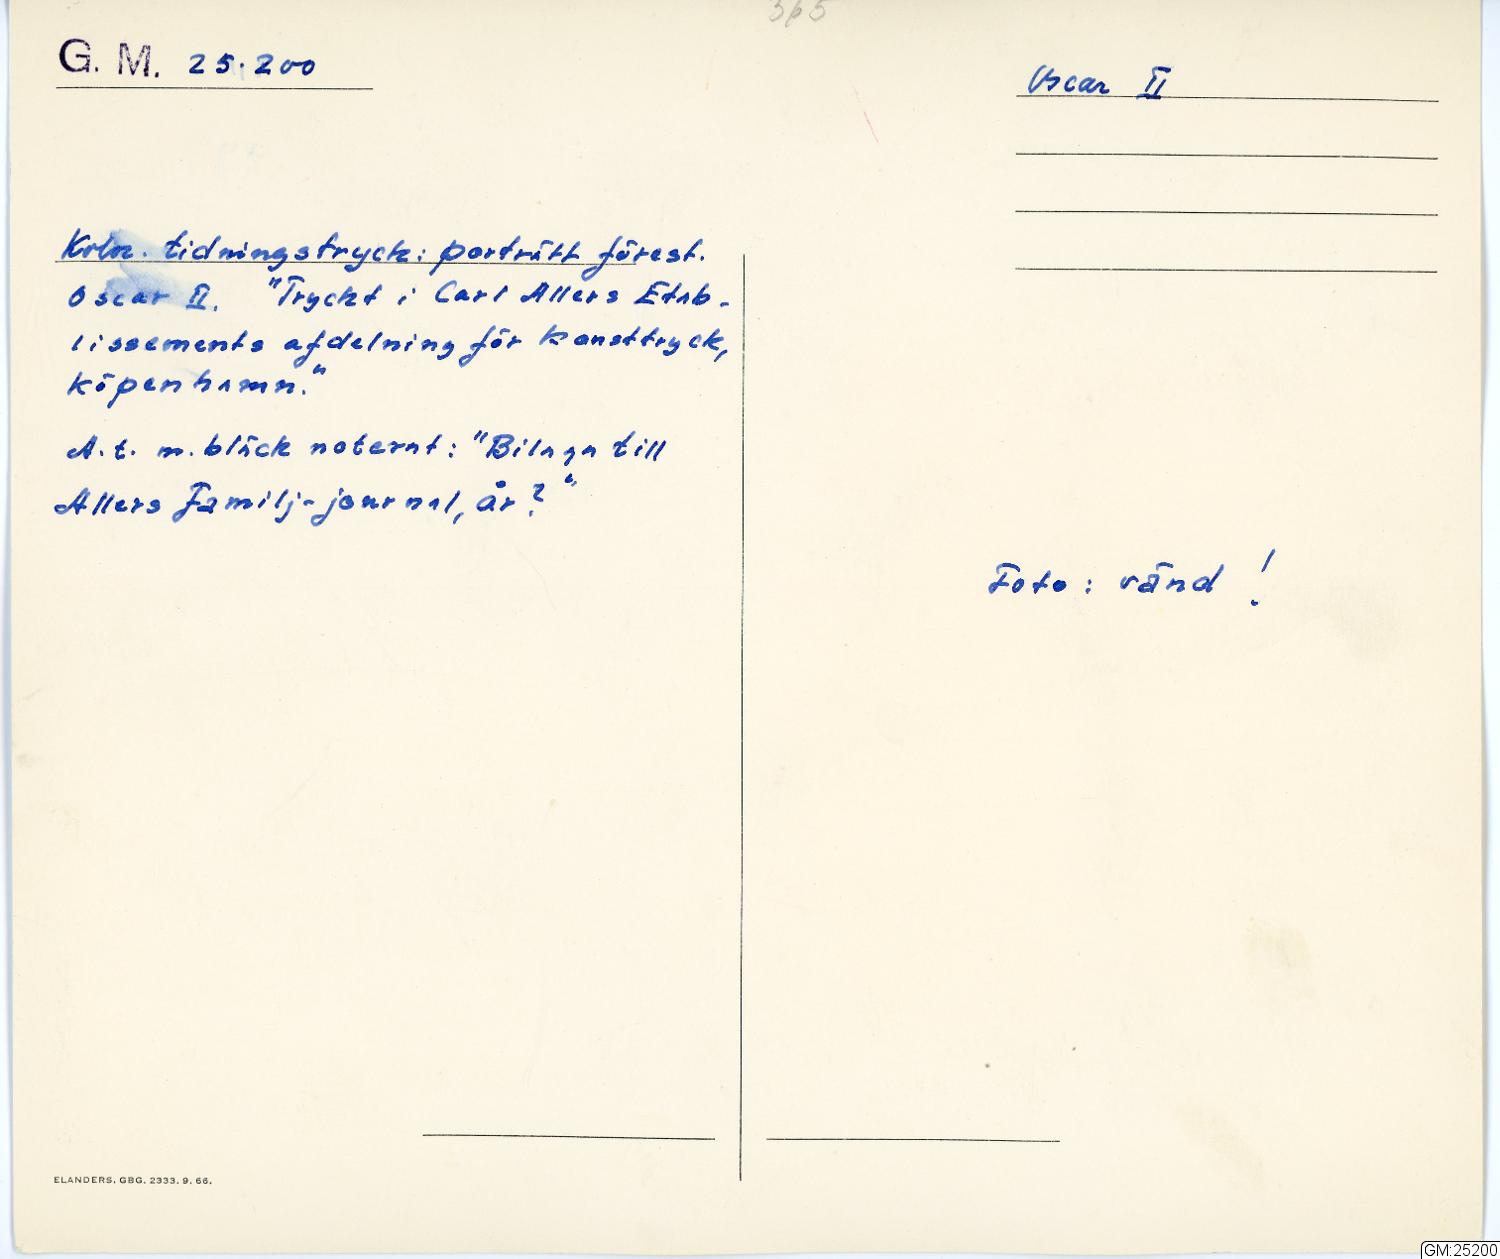 365
G. M. 25.200
Oscar II
Koln. tidningstryck: porträtt förest.
Oscar II. "Tryckt i Carl Allers Etab-
lissements afdelning för konsttryck,
köpenhamn."
A.t. m. bläck noterat: "Bilaga till
Allers Familj-journal, år?"
Foto: vänd!
ELANDERS. GBG. 2333. 9. 66.
GM:25200